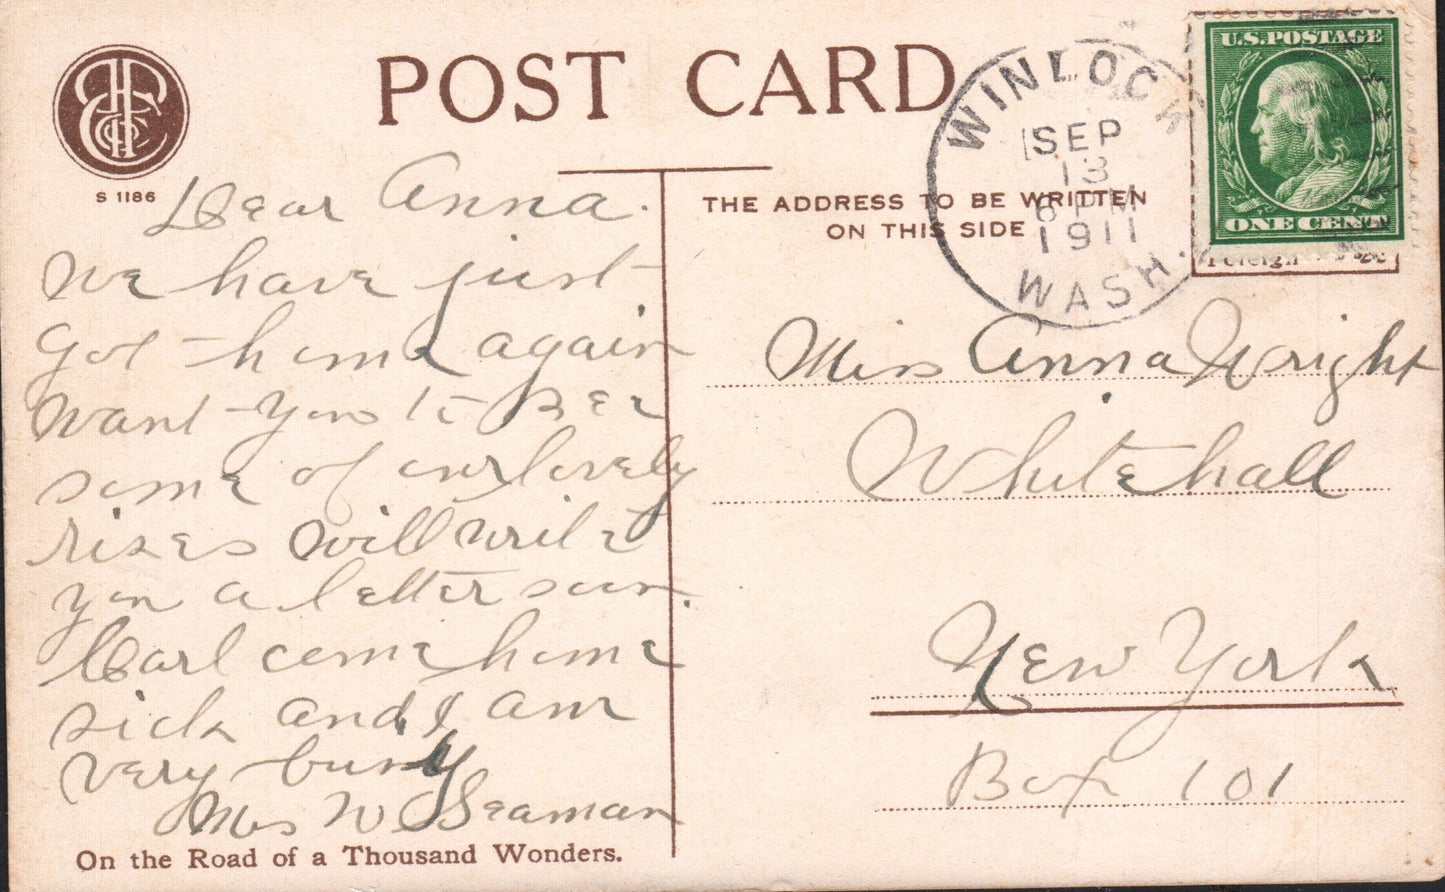 POST CARD
S 1186
THE ADDRESS TO BE WRITTEN
ON THIS SIDE
WINLOCK
SEP
13
6 PM
1911
WASH.
U.S. POSTAGE
ONE CENT
Foreign
Dear Anna.
we have just
got home again
want you to see
some of our lovely
rises will write
you a letter soon.
Carl come home
sick and I am
very busy
Mrs W Seaman
On the Road of a Thousand Wonders.
Miss Anna Wright
Whitehall
New York
Box 101